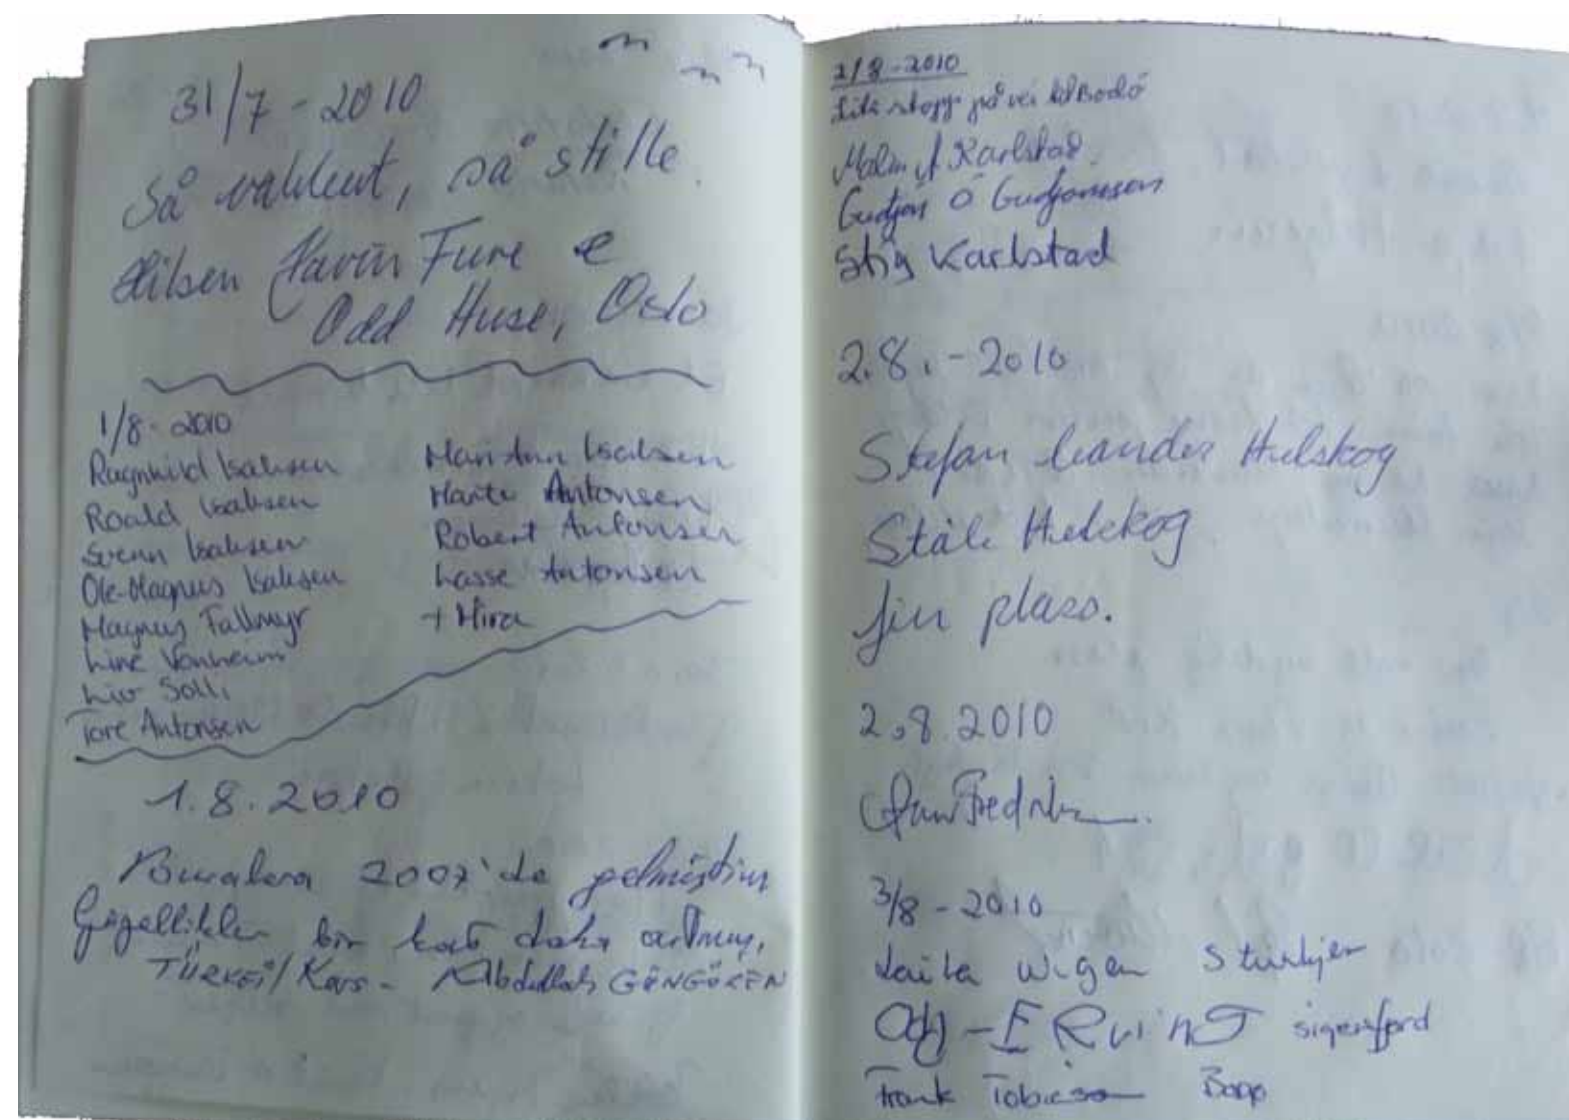 31/7 - 2010
Så vakkert, så stille.
Hilsen Karin Fure &
Odd Huse, Oslo
1/8 - 2010
Ragnhild Isaksen
Roald Isaksen
Svenn Isaksen
Ole-Magnus Isaksen
Magnus Fallmyr
Line Vanheim
Liv Solli
Tore Antonsen
Mari Ann Isaksen
Marte Antonsen
Robert Antonsen
Lasse Antonsen
+ Mira
1.8.2010
Buralara 2007'de gelmiştim
Güzellikler bir kat daha artmış,
TÜRKEİ/Kars - Abdullah GÜNGÖREN
2/8-2010
Lite stopp på vei til Bodø
Malin A Karlstad.
Gudjón Ó Gudjonsson
Stig Karlstad
2.8.-2010
Stefan Leander Helskog
Ståle Helskog
fin plass.
2.8.2010
3/8 - 2010
Laila Wigen Steinkjer
Odd-ERvinG sigerfjord
Frank Tobiassen Bodø